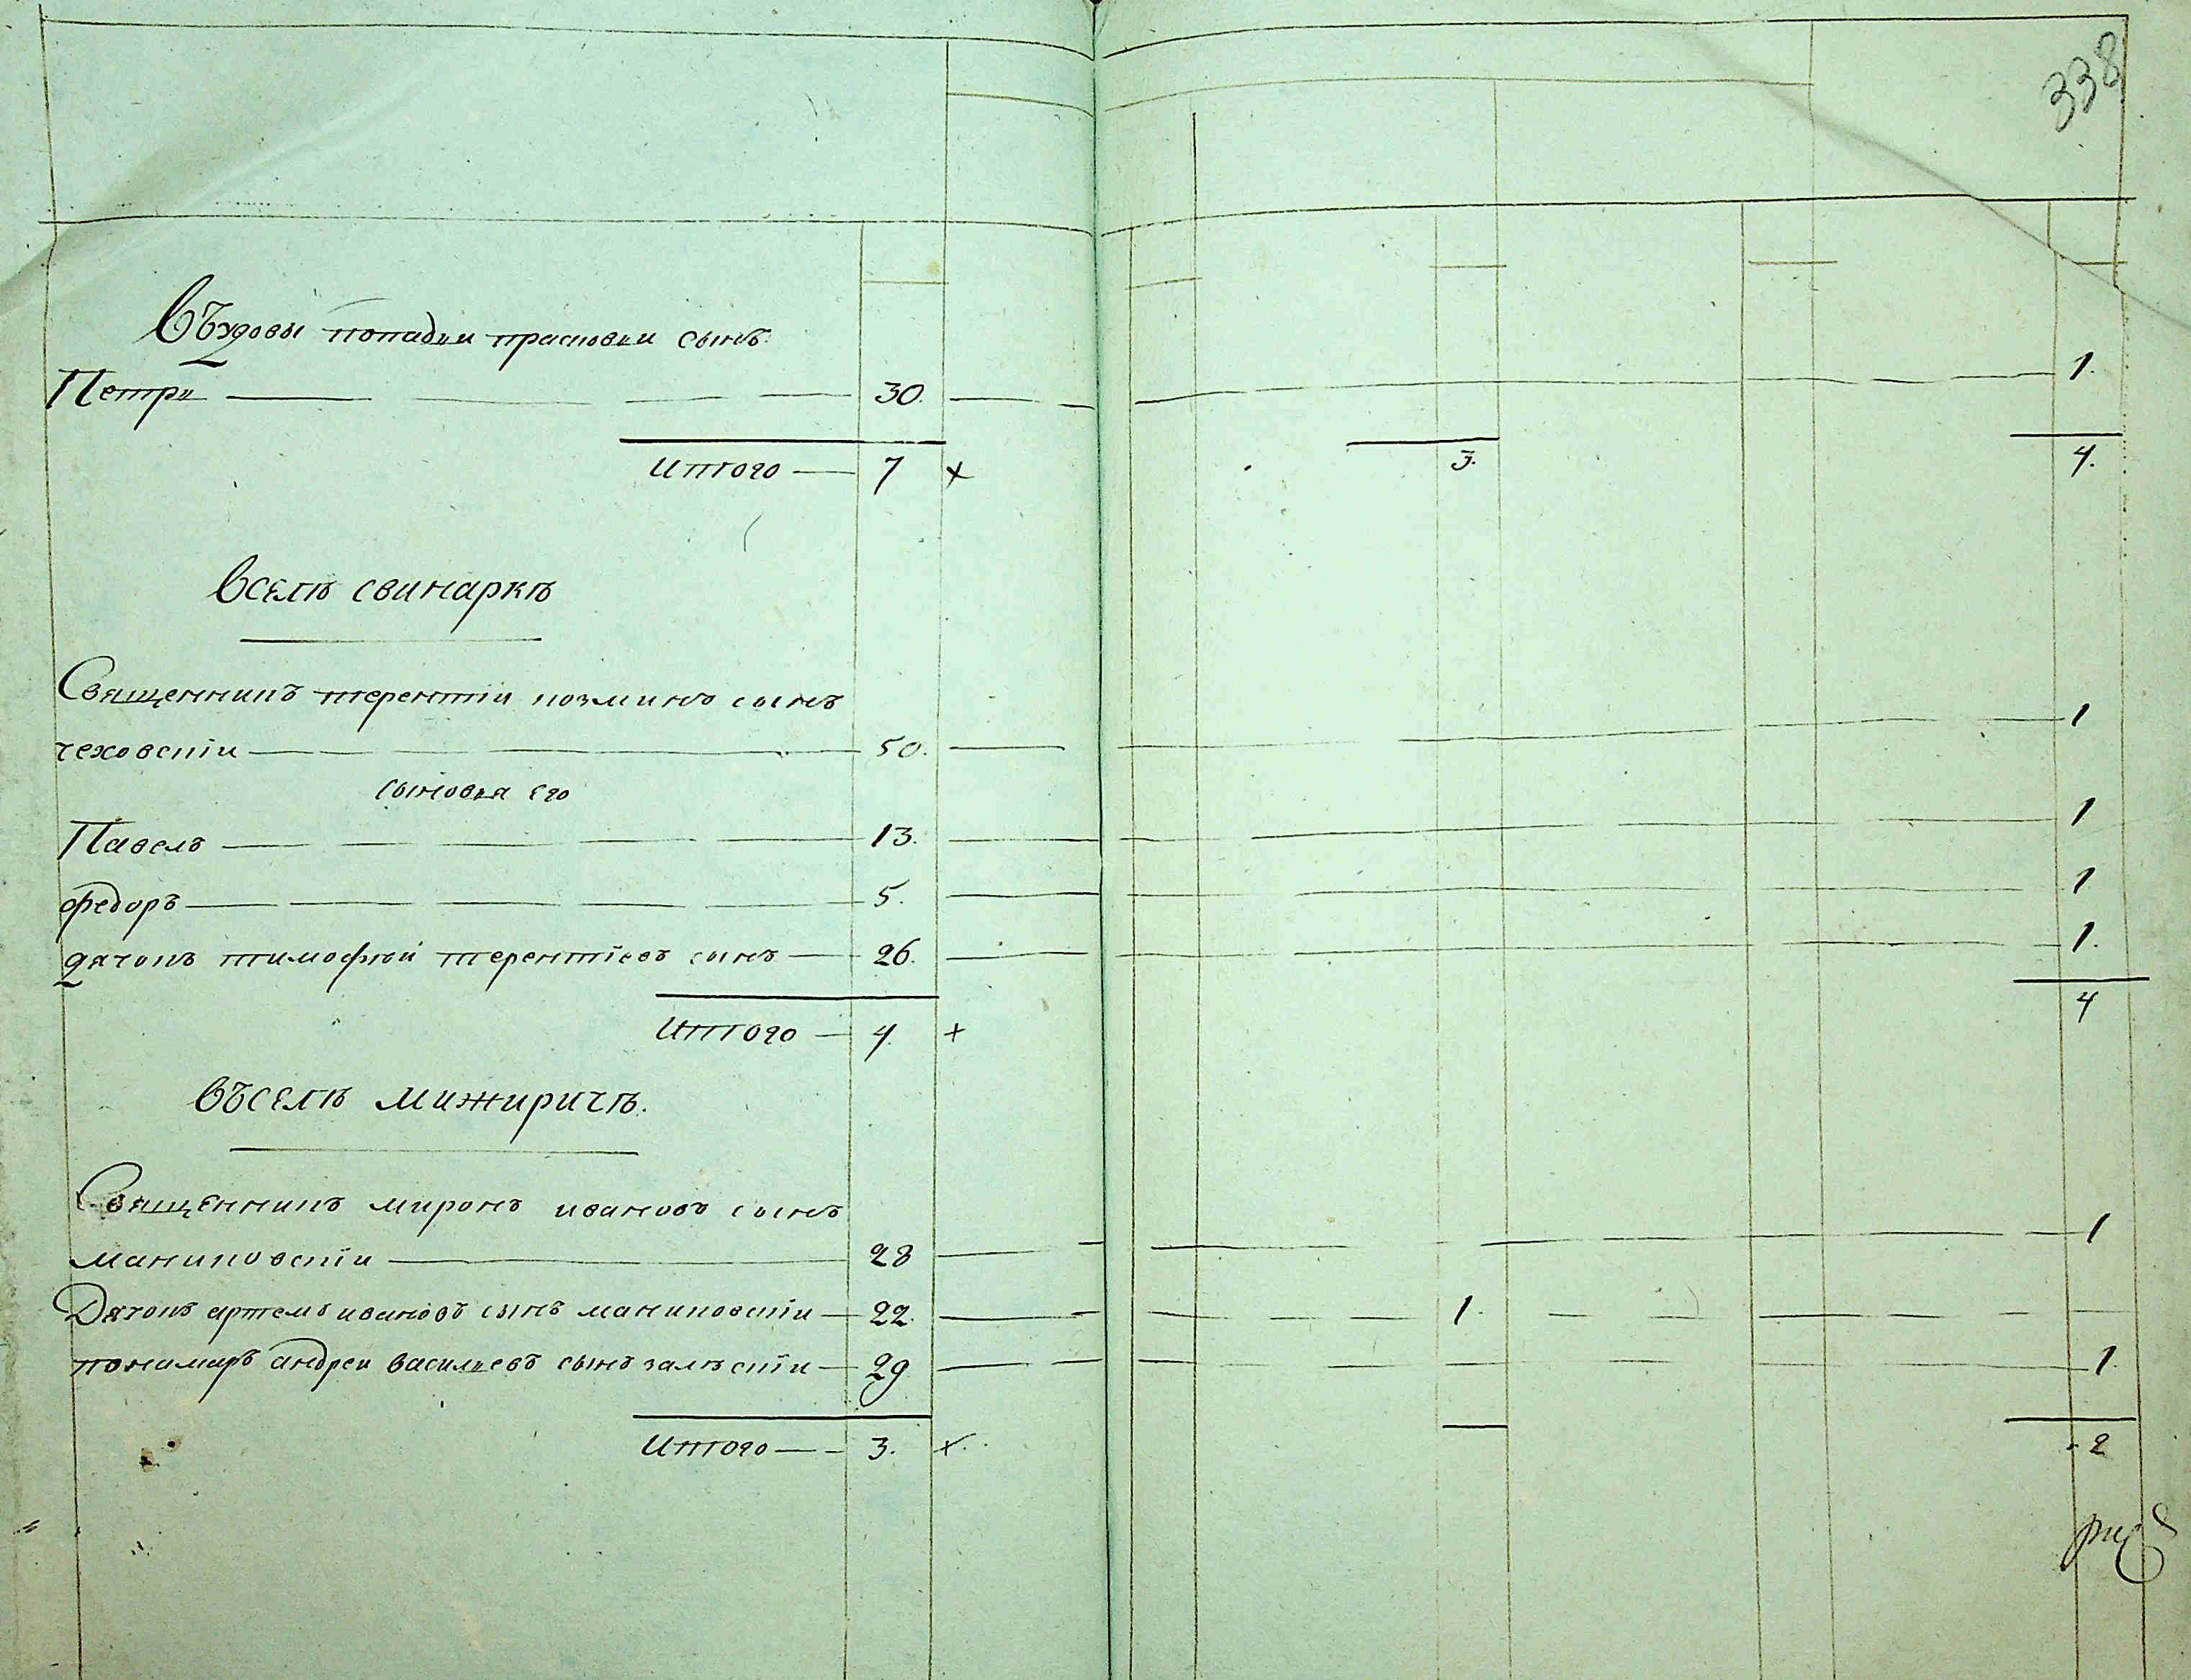 338
Въдовы попадки прасковки сынъ.
Петръ 30. 1.
Итого 7 + 3. 4.
Вселѣ свинаркѣ
Священникъ терентіи козминъ сынъ
чеховскіи 50. 1
сыновья его
Павелъ 13. 1
федоръ 5. 1
дячокъ тимофѣй терентіевъ сынъ 26. 1.
Итого 4. + 4
Въселѣ мижиричѣ.
Священникъ миронъ ивановъ сынъ
маниковскіи 28 1
Дячокъ артемъ ивановъ сынъ маниковскіи 22. 1.
пономаръ андреи васильевъ сынъ залѣскіи 29 1.
Итого 3. + 2